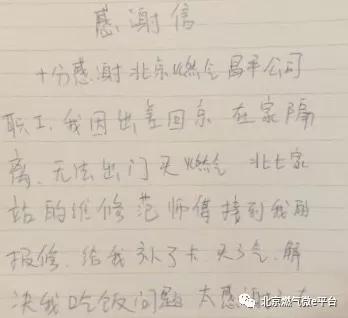 感谢信
十分感谢北京燃气昌平公司
职工,我因出差回京 在家隔
离.无法出门买燃气 北七家
站的维修范师傅接到我的
报修.给我补了卡.买了气.解
决我吃饭问题 太感谢
北京燃气微e平台